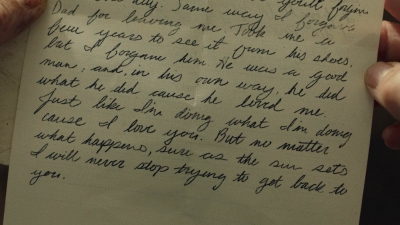 day. Same way I forgave
Dad for leaving me. Took me a
few years to see it from his shoes,
but I forgave him. He was a good
man, and, in his own way, he did
what he did cause he loved me
just like I'm doing what I'm doing
cause I love you. But no matter
what happens, sure as the sun sets
I will never stop trying to get back to
you.